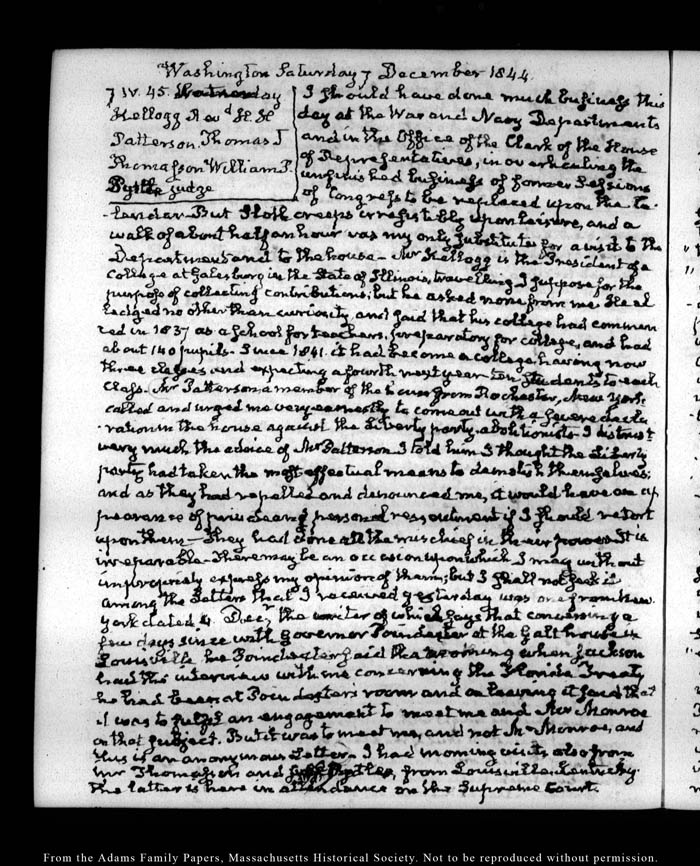 Washington Saturday 7 December 1844.
7 IV. 45. Saturday
Kellogg Revd H. H
Patterson Thomas J
Thomasson William P.
Pirtle Judge
I should have done much business this
day at the War and Navy Departments
and in the Office of the Clerk of the House
of Representatives, in overhauling the
unfinished business of former Sessions
of Congress to be replaced upon the Ca-
-lendar. But Sloth creeps irresistibly upon leisure, and a
walk of about half an hour was my only substitute for a visit to the
Departments and to the house- Mr Kellogg is the President of a
College at Galesburg in the State of Illinois, travelling I suppose for the
purpose of collecting contributions; but he asked none from me. He al
ledged no other than curiosity, and said that his college had commen
ced in 1837 as a School for teachers, preparatory for college, and had
about 140 pupils- Since 1841. it had become a college, having now
three classes and expecting a fourth next year ten Students to each
Class. Mr Patterson a member of the from Rochester, New York,
called and urged me very earnestly to come out with a severe decla
-ration in the house against the Liberty party, abolitionists- I distrust
very much the advice of Mr Patterson. I told him I thought the Liberty
party had taken the most effectual means to demolish themselves;
and as they had repelled and denounced me, it would have an ap
pearance of pursuing personal resentment if I should retort
upon them- They had done all the mischief in their power. It is
irreparable- There may be an occasion upon which I may without
impropriety express my opinion of them; but I shall not seek it
among the Letters that I received yesterday was one from New-
York dated 4. Decr the writer of which says that conversing a
few days since with Governor Poindexter at the Galt house in
Louisville he Poindexter said that the morning when Jackson
had the interview with me concerning the Florida Treaty
he had been at Poindexter's room and on leaving it said that
it was to fulfil an engagement to meet me and Mr Monroe
on that subject. But it was to meet me, and not Mr Monroe, and
this is an anonymous Letter- I had morning visits also from
Mr Thomasson and Pirtle, from Louisville, Kentucky.
The latter is here in attendance on the Supreme Court.
From the Adams Family Papers, Massachusetts Historical Society. Not to be reproduced without permission.